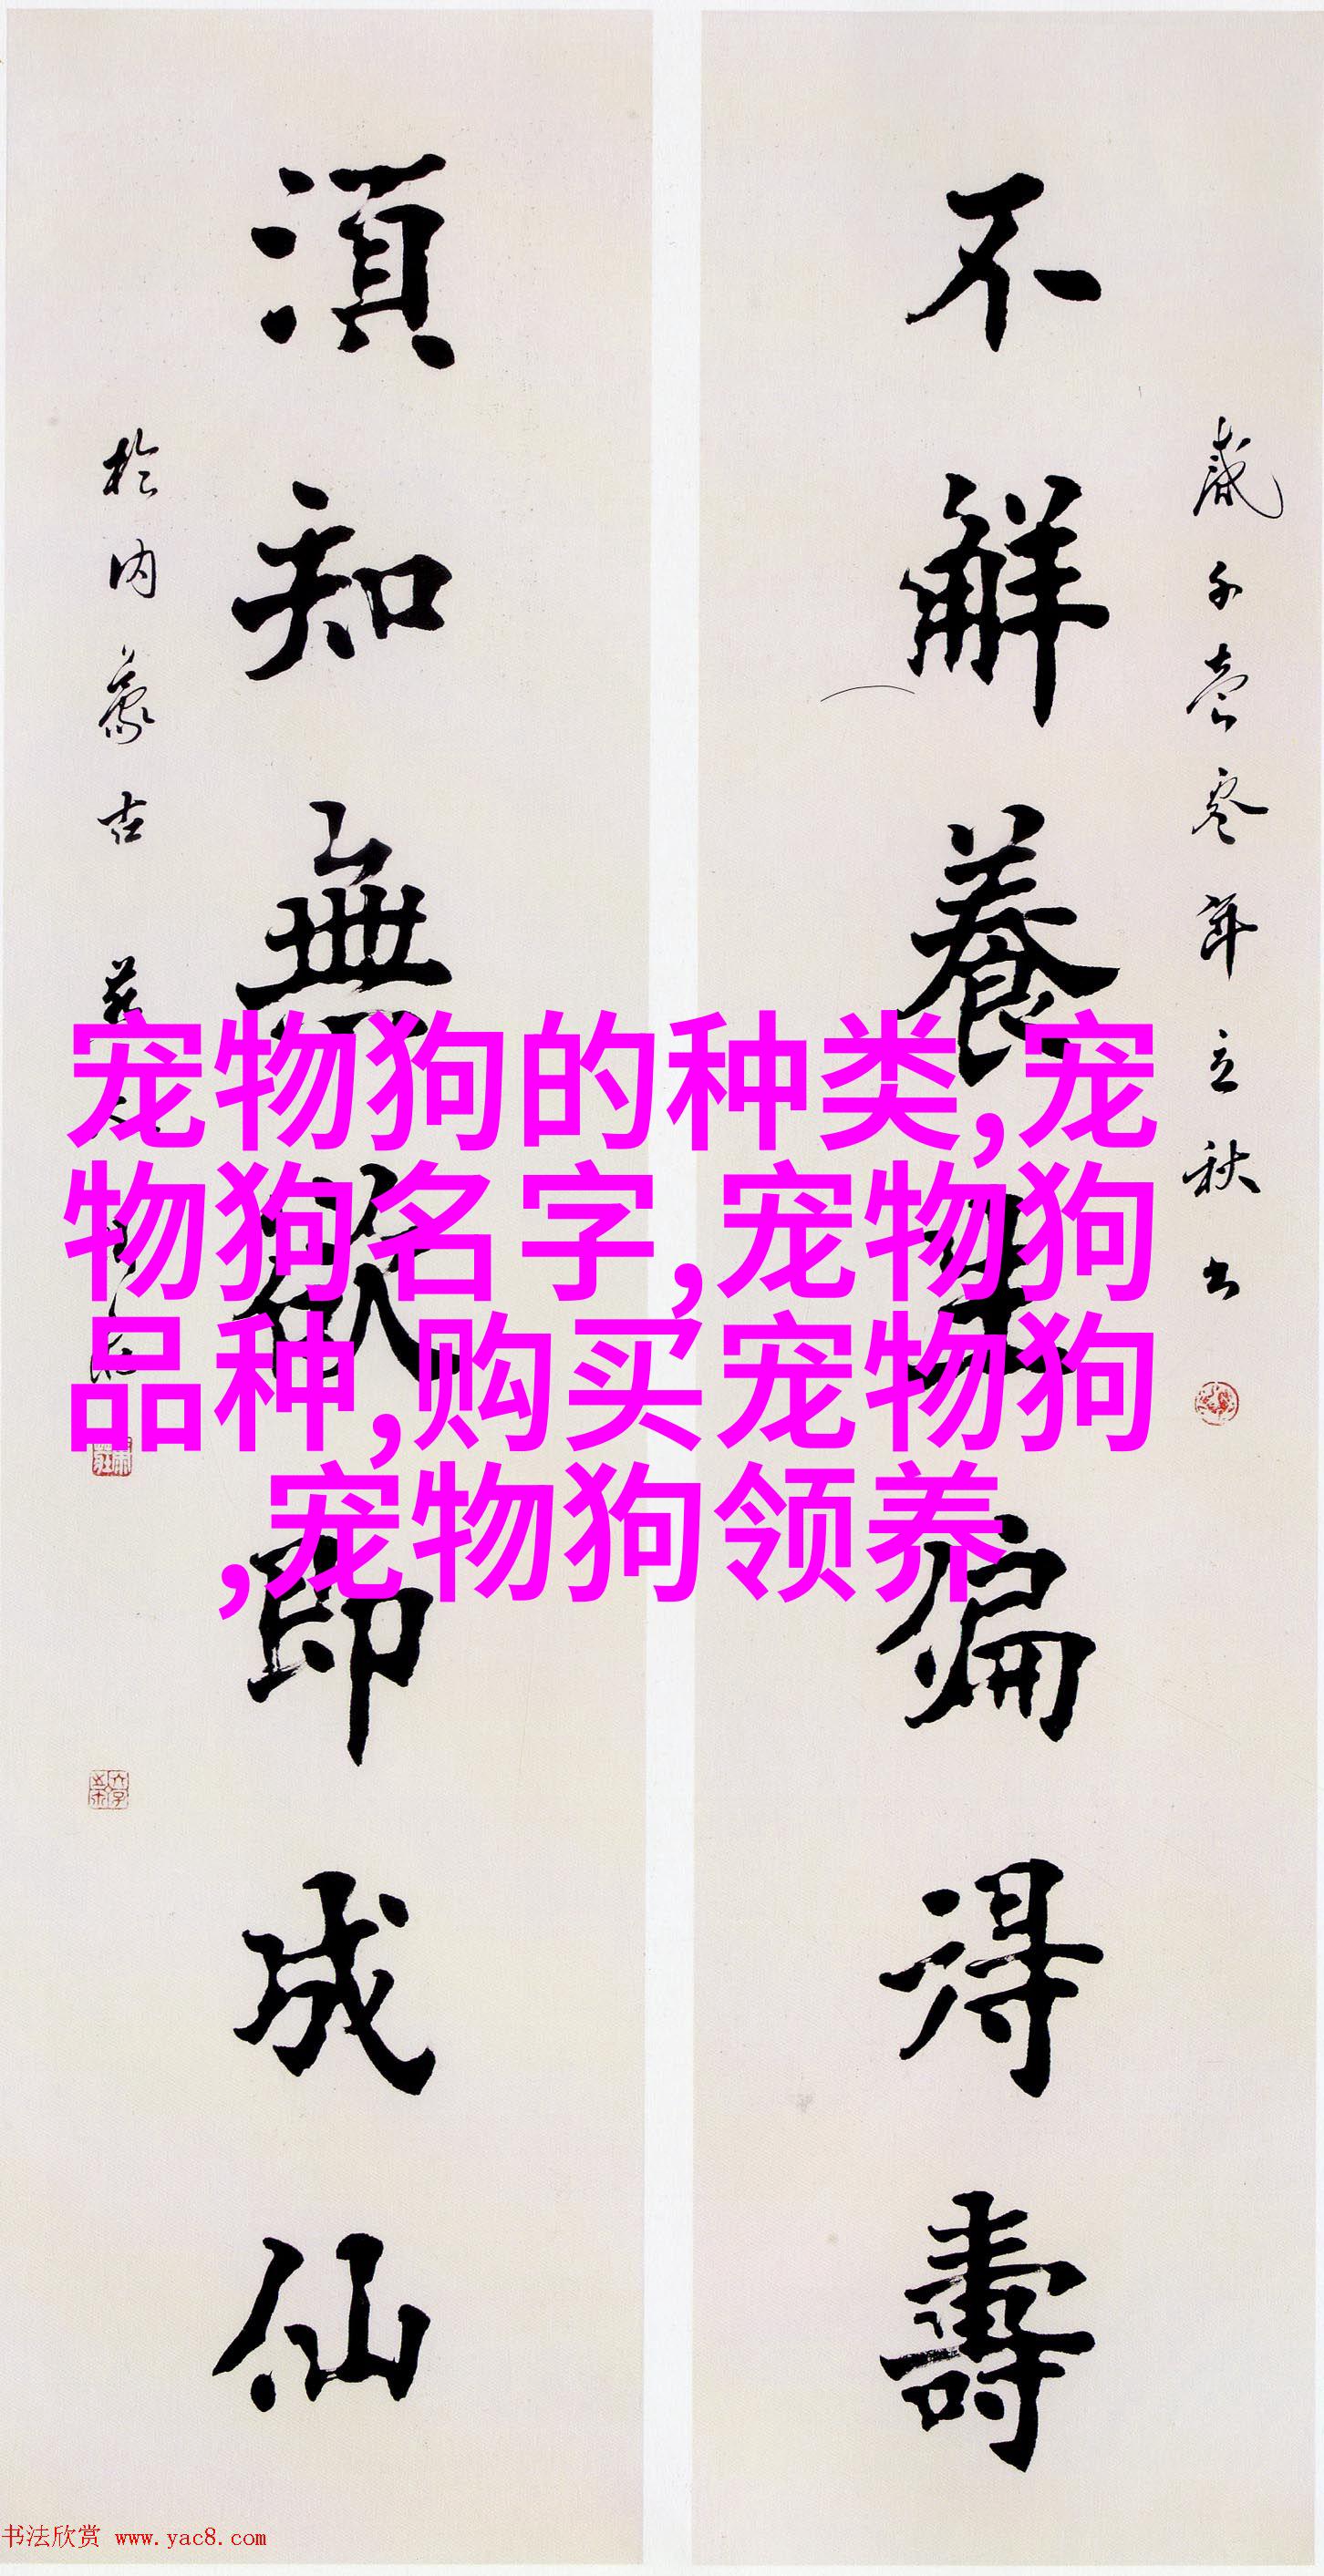 不解養生偏得壽
歲千壹零年立秋書
須知無欲即成仙
於内蒙古
宠物狗的种类,宠
物狗名字,宠物狗
品种,购买宠物狗
,宠物狗领养
书法欣赏 www.yac8.com